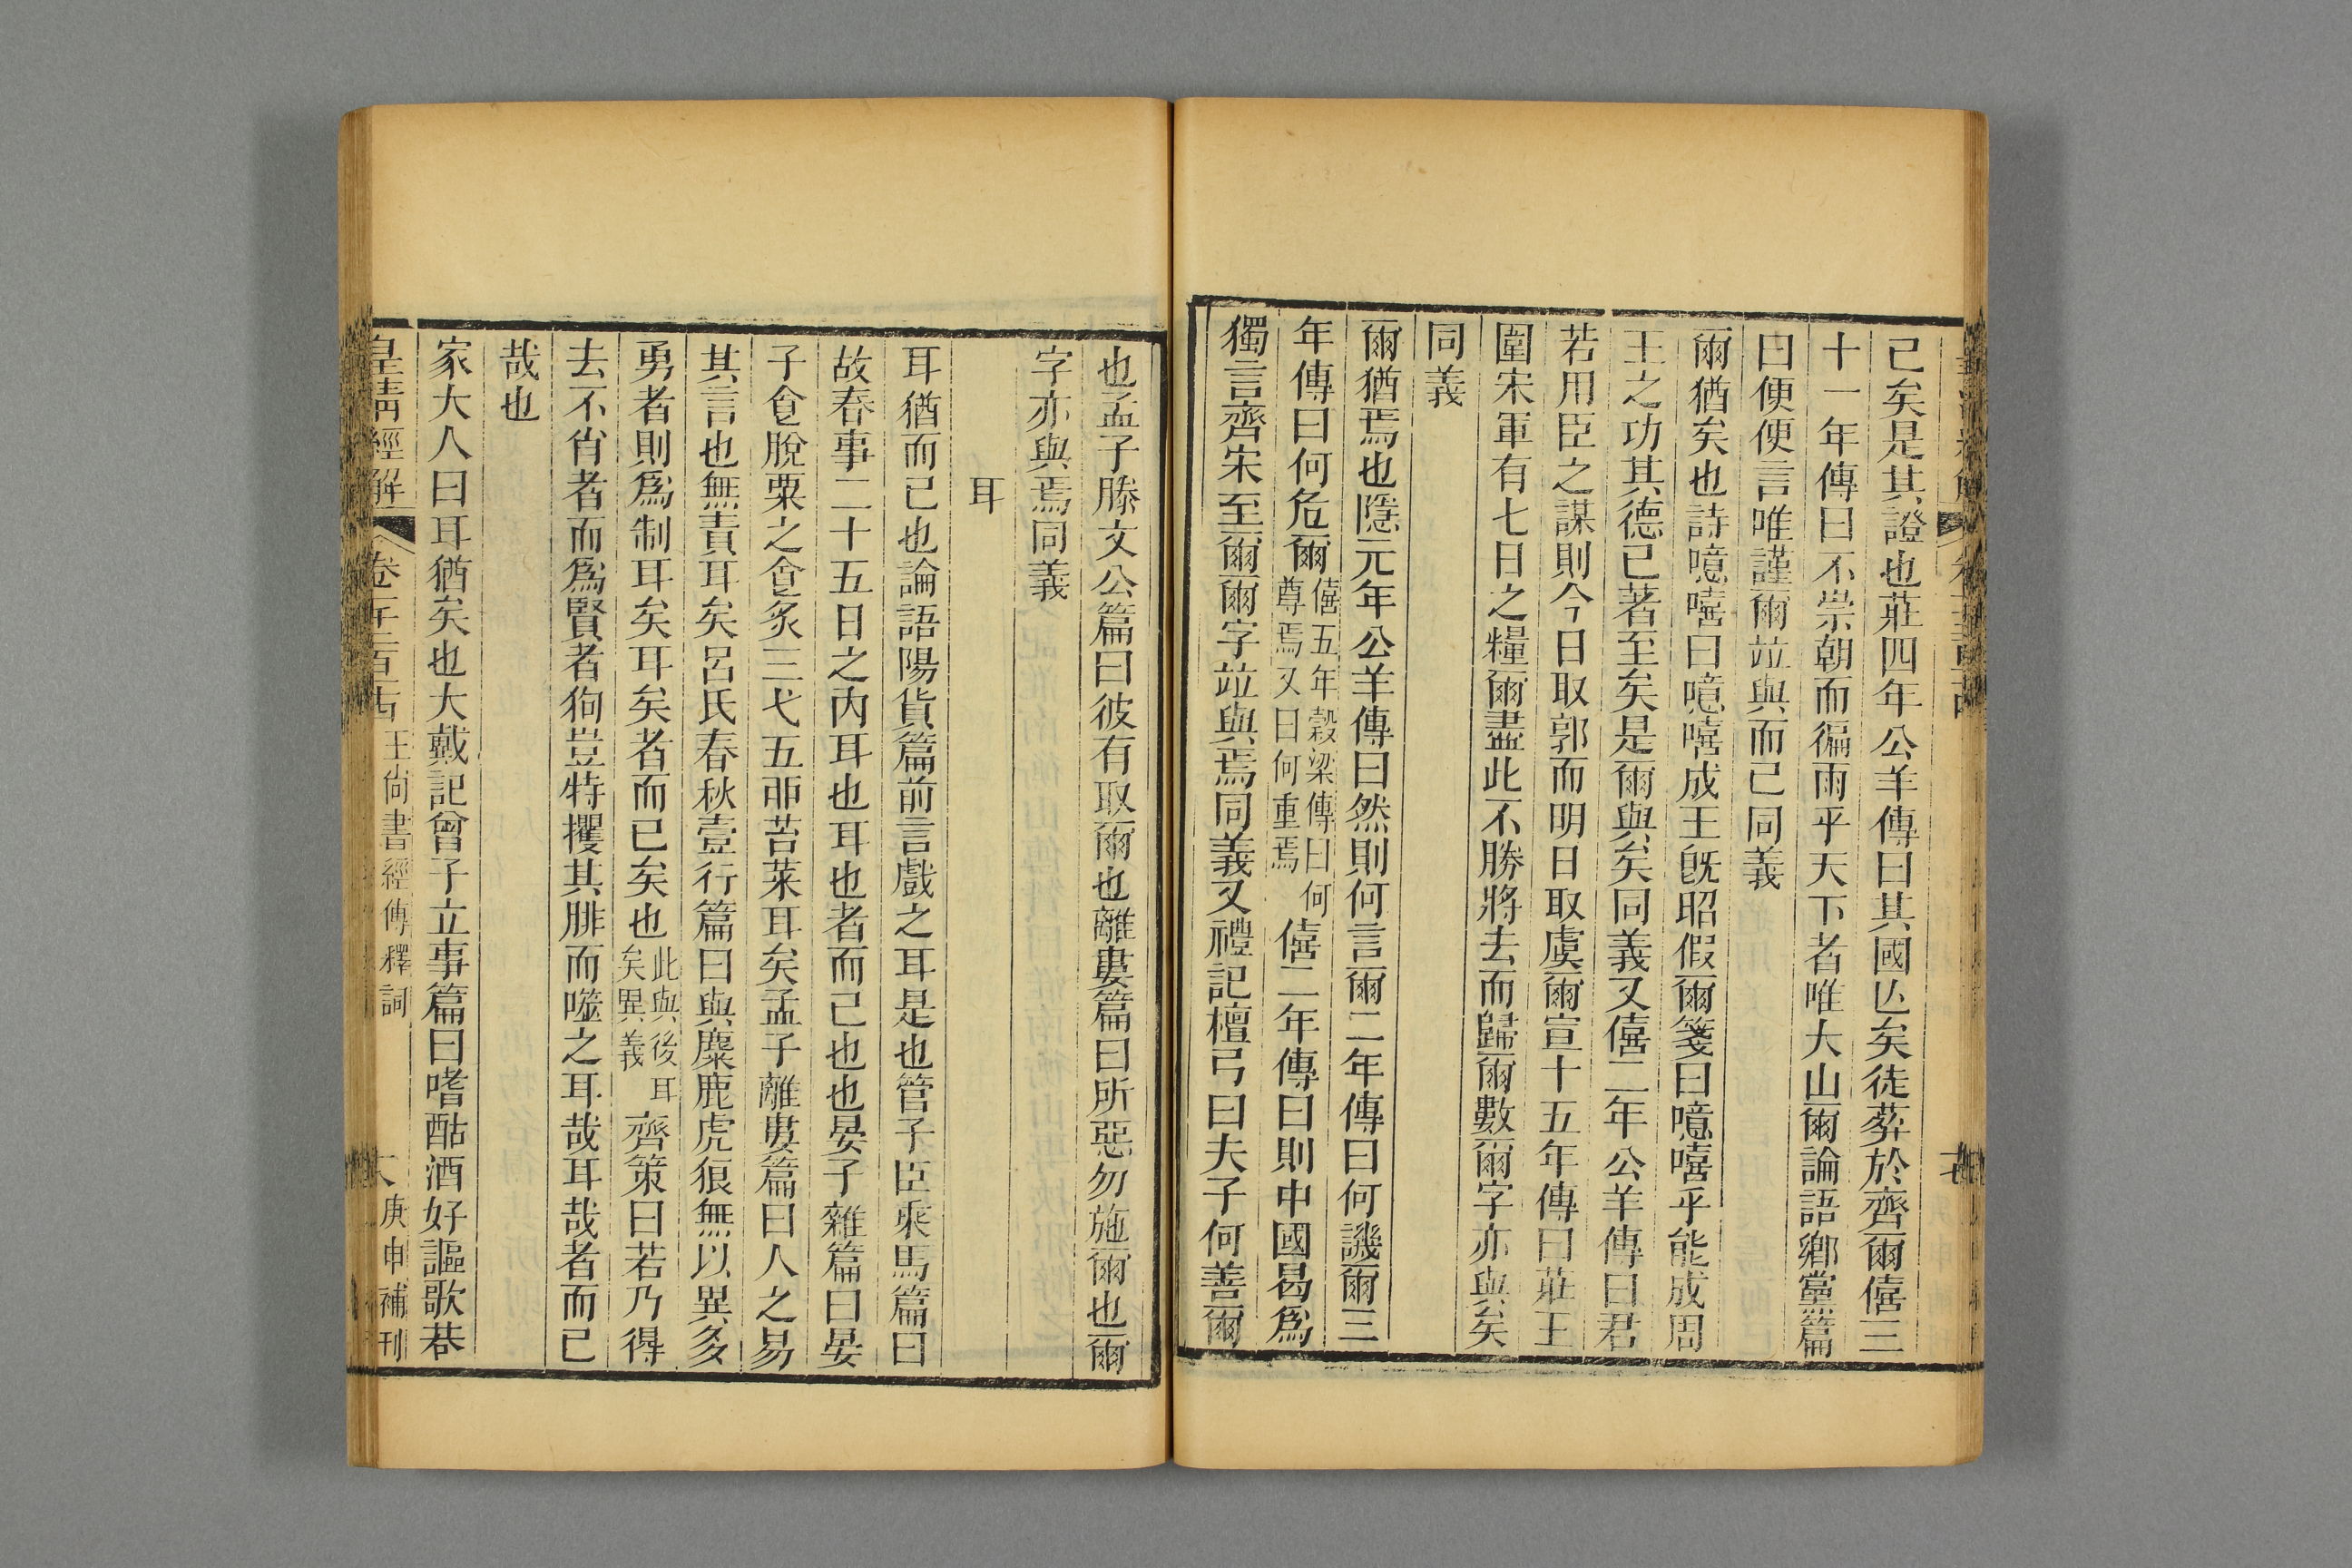 已矣是其證也莊四年公羊傳曰其國亾矣徒葬於齊爾僖三
十一年傳曰不崇朝而徧雨乎天下者唯大山爾論語鄉黨篇
曰便便言唯謹爾竝與而已同義
爾猶矣也詩噫嘻曰噫嘻成王旣昭假爾箋曰噫嘻乎能成周
王之功其德已著至矣是爾與矣同義又僖二年公羊傳曰君
若用臣之謀則今日取郭而明日取虞爾宣十五年傳曰莊王
圍宋軍有七日之糧爾盡此不勝將去而歸爾數爾字亦與矣
同義
爾猶焉也隱元年公羊傳曰然則何言爾二年傳曰何譏爾三
年傳曰何危爾僖五年穀梁傳曰何尊焉又曰何重焉僖二年傳曰則中國曷爲
獨言齊宋至爾爾字竝與焉同義又禮記檀弓曰夫子何善爾
也孟子滕文公篇曰彼有取爾也離婁篇曰所惡勿施爾也爾
字亦與焉同義
耳
耳猶而已也論語陽貨篇前言戲之耳是也管子臣乘馬篇曰
故春事二十五日之內耳也耳也者而已也也晏子雜篇曰晏
子食脫粟之食炙三弋五卵苔菜耳矣孟子離婁篇曰人之易
其言也無責耳矣呂氏春秋壹行篇曰與麋鹿虎狼無以異多
勇者則爲制耳矣耳矣者而已矣也此與後耳矣異義齊策曰若乃得
去不肖者而爲賢者狗豈特攫其腓而噬之耳哉耳哉者而已
哉也
家大人曰耳猶矣也大戴記曾子立事篇曰嗜酤酒好謳歌巷
皇淸經解 卷一千二百一十四 王尙書經傳釋詞 庚申補刊